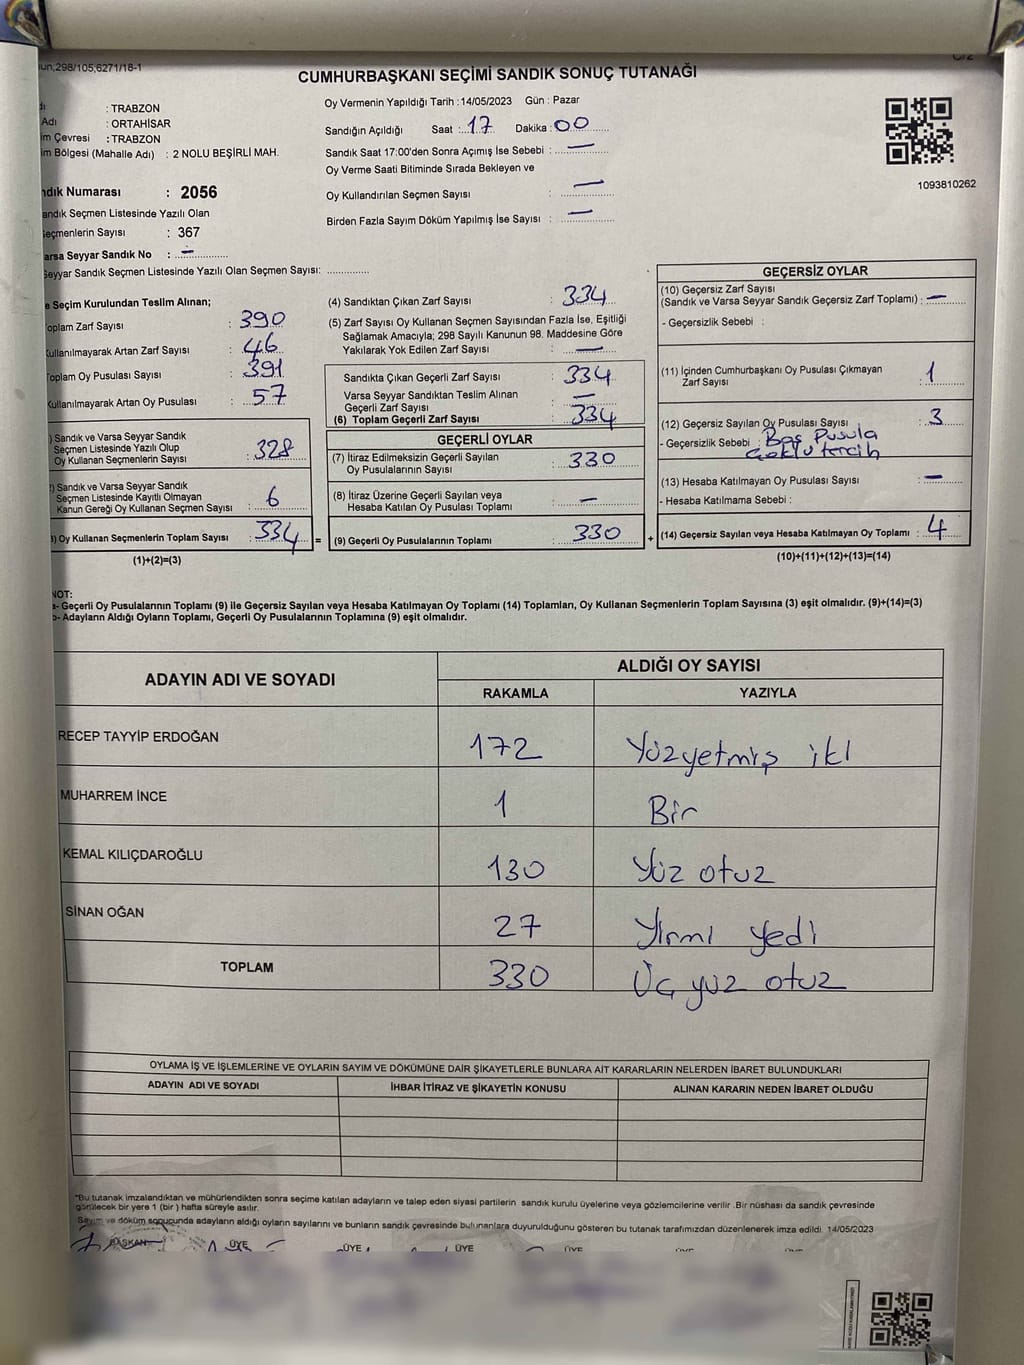 298/105,6271/18-1
CUMHURBAŞKANI SEÇİMİ SANDIK SONUÇ TUTANAĞI
: TRABZON
Adı : ORTAHİSAR
Çevresi : TRABZON
Bölgesi (Mahalle Adı) : 2 NOLU BEŞİRLİ MAH.
Numarası : 2056
Seçmen Listesinde Yazılı Olan
Sayısı : 367
Seyyar Sandık No : —
Seyyar Sandık Seçmen Listesinde Yazılı Olan Seçmen Sayısı: ..............
Oy Vermenin Yapıldığı Tarih : 14/05/2023 Gün : Pazar
Sandığın Açıldığı Saat : 17 Dakika : 00
Sandık Saat 17:00'den Sonra Açımış İse Sebebi : —
Oy Verme Saati Bitiminde Sırada Bekleyen ve
Oy Kullandırılan Seçmen Sayısı : —
Birden Fazla Sayım Döküm Yapılmış İse Sayısı : —
1093810262
Seçim Kurulundan Teslim Alınan;
Zarf Sayısı : 390
Artan Zarf Sayısı : 46
Oy Pusulası Sayısı : 391
Artan Oy Pusulası : 57
Sandık ve Varsa Seyyar Sandık
Seçmen Listesinde Yazılı Olup
Oy Kullanan Seçmenlerin Sayısı : 328
Sandık ve Varsa Seyyar Sandık
Seçmen Listesinde Kayıtlı Olmayan
Kanun Gereği Oy Kullanan Seçmen Sayısı : 6
Oy Kullanan Seçmenlerin Toplam Sayısı : 334 =
(1)+(2)=(3)
(4) Sandıktan Çıkan Zarf Sayısı : 334
(5) Zarf Sayısı Oy Kullanan Seçmen Sayısından Fazla İse, Eşitliği
Sağlamak Amacıyla; 298 Sayılı Kanunun 98. Maddesine Göre
Yakılarak Yok Edilen Zarf Sayısı : —
Sandıkta Çıkan Geçerli Zarf Sayısı : 334
Varsa Seyyar Sandıktan Teslim Alınan
Geçerli Zarf Sayısı : —
(6) Toplam Geçerli Zarf Sayısı : 334
GEÇERLİ OYLAR
(7) İtiraz Edilmeksizin Geçerli Sayılan
Oy Pusulalarının Sayısı : 330
(8) İtiraz Üzerine Geçerli Sayılan veya
Hesaba Katılan Oy Pusulası Toplamı : —
(9) Geçerli Oy Pusulalarının Toplamı : 330 +
GEÇERSİZ OYLAR
(10) Geçersiz Zarf Sayısı
(Sandık ve Varsa Seyyar Sandık Geçersiz Zarf Toplamı) : —
- Geçersizlik Sebebi :
(11) İçinden Cumhurbaşkanı Oy Pusulası Çıkmayan
Zarf Sayısı : 1
(12) Geçersiz Sayılan Oy Pusulası Sayısı : 3
- Geçersizlik Sebebi : Boş Pusula
Çoklu tercih
(13) Hesaba Katılmayan Oy Pusulası Sayısı : —
- Hesaba Katılmama Sebebi :
(14) Geçersiz Sayılan veya Hesaba Katılmayan Oy Toplamı : 4
(10)+(11)+(12)+(13)=(14)
NOT:
a- Geçerli Oy Pusulalarının Toplamı (9) ile Geçersiz Sayılan veya Hesaba Katılmayan Oy Toplamı (14) Toplamları, Oy Kullanan Seçmenlerin Toplam Sayısına (3) eşit olmalıdır. (9)+(14)=(3)
b- Adayların Aldığı Oyların Toplamı, Geçerli Oy Pusulalarının Toplamına (9) eşit olmalıdır.
ADAYIN ADI VE SOYADI ALDIĞI OY SAYISI
RAKAMLA YAZIYLA
RECEP TAYYİP ERDOĞAN 172 Yüzyetmiş iki
MUHARREM İNCE 1 Bir
KEMAL KILIÇDAROĞLU 130 Yüz otuz
SİNAN OĞAN 27 Yirmi yedi
TOPLAM 330 Üç yüz otuz
OYLAMA İŞ VE İŞLEMLERİNE VE OYLARIN SAYIM VE DÖKÜMÜNE DAİR ŞİKAYETLERLE BUNLARA AİT KARARLARIN NELERDEN İBARET BULUNDUKLARI
ADAYIN ADI VE SOYADI İHBAR İTİRAZ VE ŞİKAYETİN KONUSU ALINAN KARARIN NEDEN İBARET OLDUĞU
*Bu tutanak imzalandıktan ve mühürlendikten sonra seçime katılan adayların ve talep eden siyasi partilerin sandık kurulu üyelerine veya gözlemcilerine verilir .Bir nüshası da sandık çevresinde
görülecek bir yere 1 (bir ) hafta süreyle asılır.
Sayım ve döküm sonucunda adayların aldığı oyların sayılarını ve bunların sandık çevresinde bulunanlara duyurulduğunu gösteren bu tutanak tarafımızdan düzenlenerek imza edildi. 14/05/2023
BAŞKAN ÜYE ÜYE ÜYE ÜYE